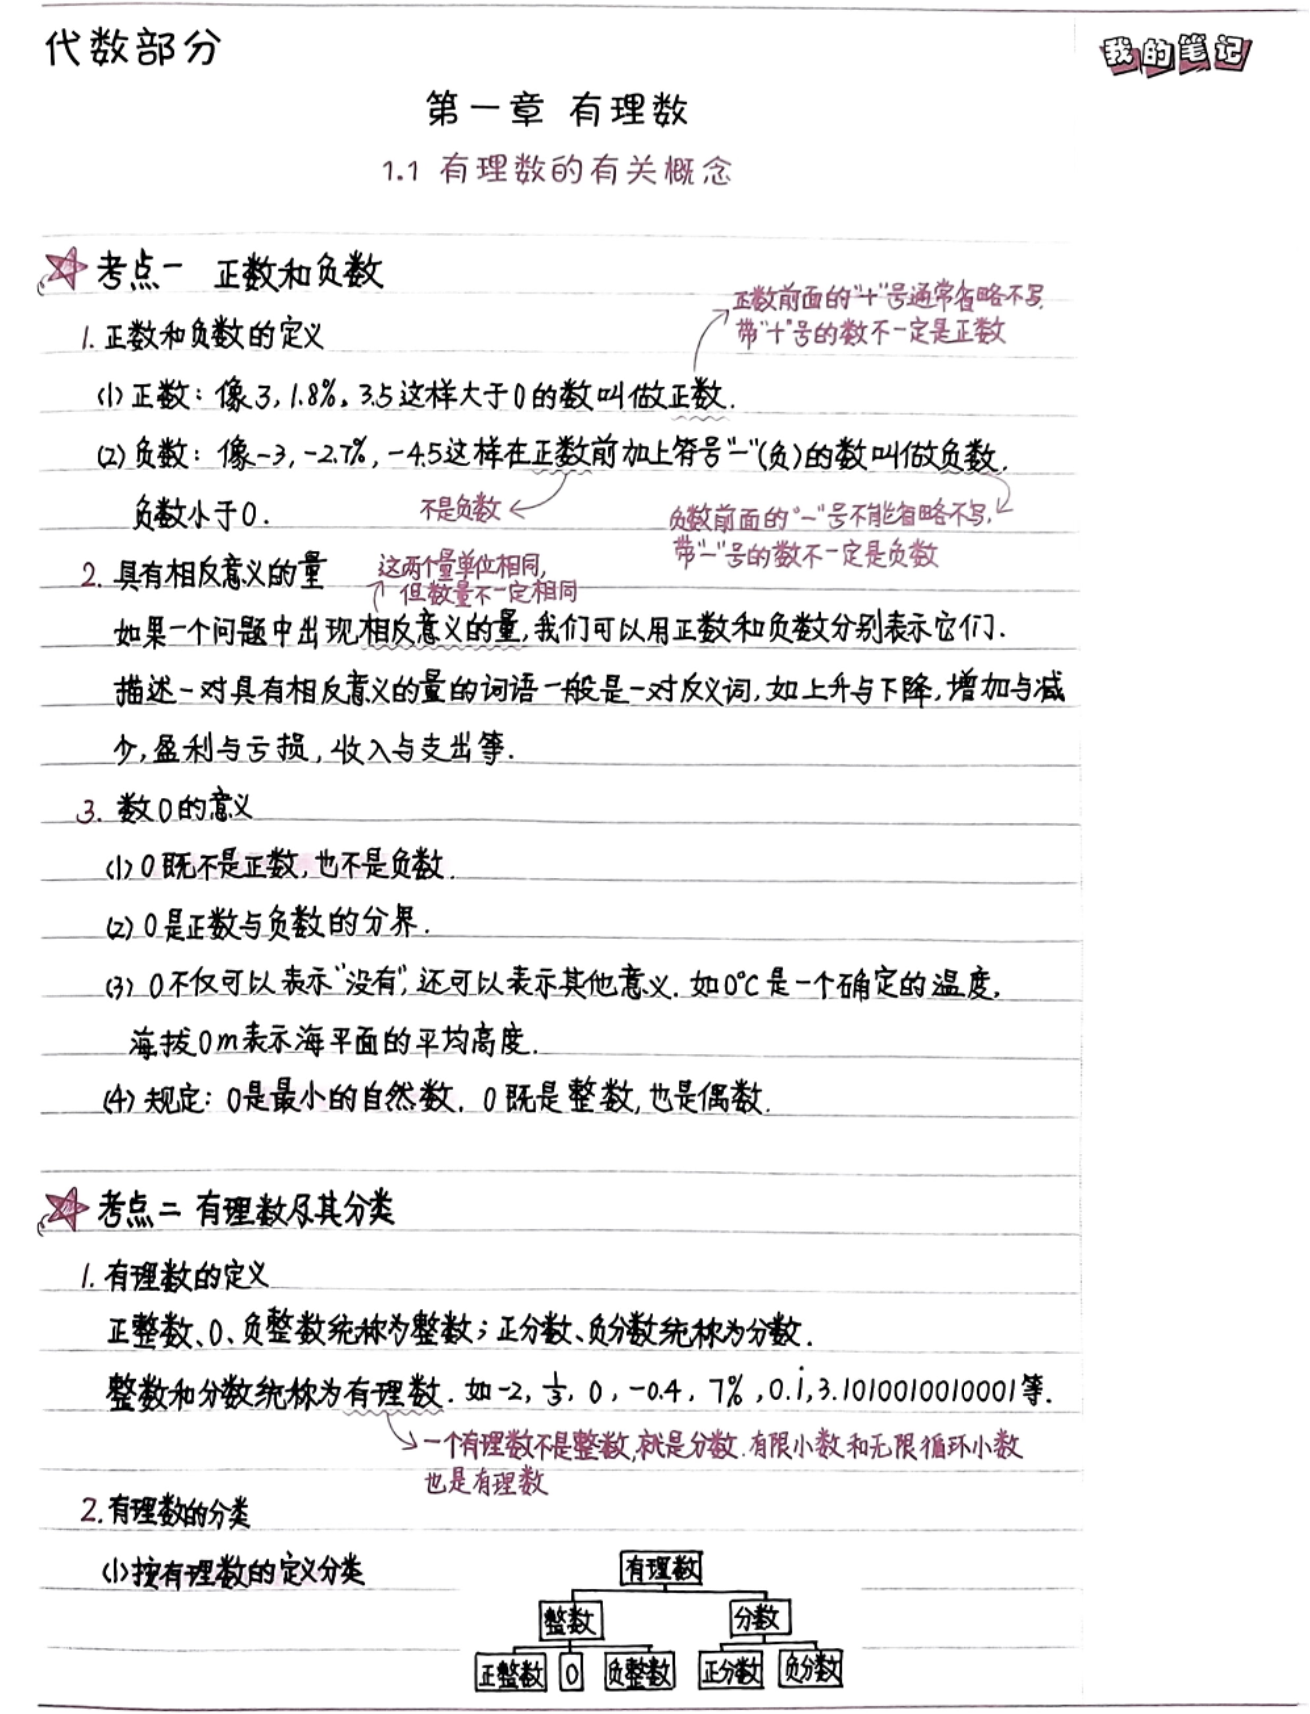 代数部分
我的笔记
第一章 有理数
1.1 有理数的有关概念
考点一 正数和负数
正数前面的“+”号通常省略不写.
带“+”号的数不一定是正数
1. 正数和负数的定义
(1) 正数：像3, 1.8%, 3.5这样大于0的数叫做正数.
(2) 负数：像-3, -2.7%, -4.5这样在正数前加上符号“-”(负)的数叫做负数.
负数小于0.
不是负数
负数前面的“-”号不能省略不写,
带“-”号的数不一定是负数
2. 具有相反意义的量
这两个量单位相同,
但数量不一定相同
如果一个问题中出现相反意义的量,我们可以用正数和负数分别表示它们.
描述一对具有相反意义的量的词语一般是一对反义词,如上升与下降,增加与减
少,盈利与亏损,收入与支出等.
3. 数0的意义
(1) 0既不是正数,也不是负数.
(2) 0是正数与负数的分界.
(3) 0不仅可以表示“没有”,还可以表示其他意义.如0℃是一个确定的温度,
海拔0m表示海平面的平均高度.
(4) 规定：0是最小的自然数. 0既是整数,也是偶数.
考点二 有理数及其分类
1. 有理数的定义
正整数、0、负整数统称为整数；正分数、负分数统称为分数.
整数和分数统称为有理数. 如-2, 1/3, 0, -0.4, 7%, 0.1̇, 3.1010010010001等.
一个有理数不是整数,就是分数.有限小数和无限循环小数
也是有理数
2. 有理数的分类
(1) 按有理数的定义分类
有理数
整数 分数
正整数 0 负整数 正分数 负分数